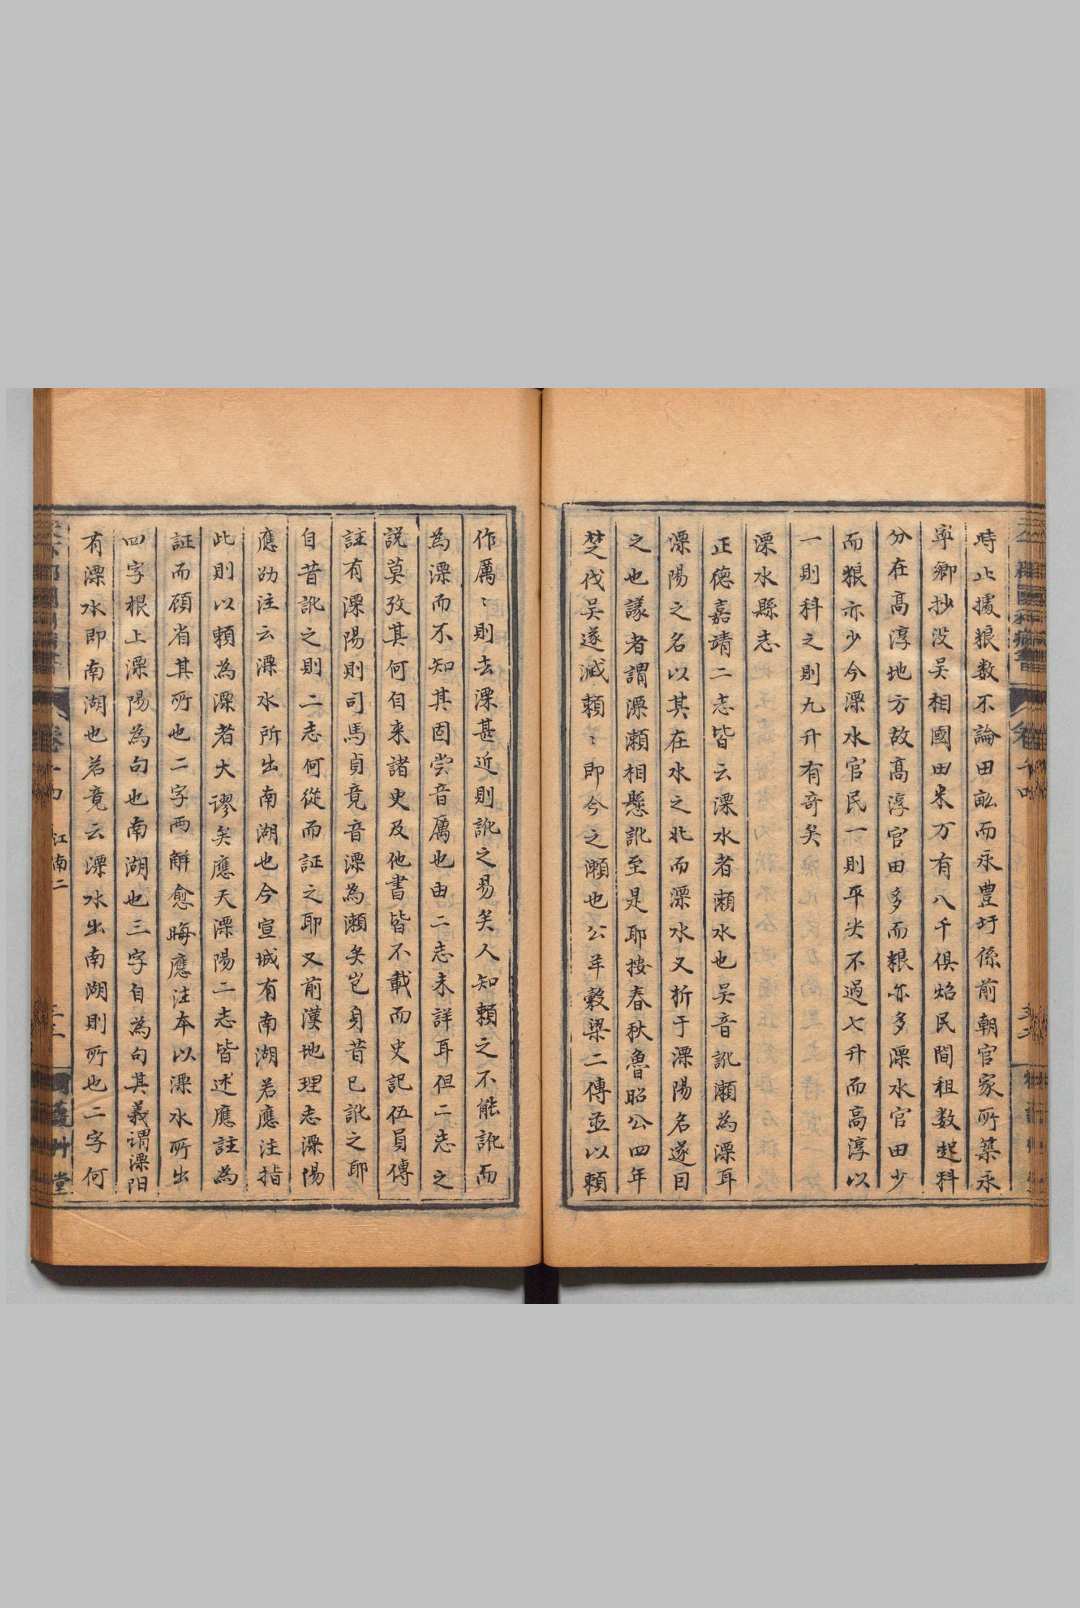 時止據狼数不論田畆而永豊圩係前朝官家所築永
寕卿抄没吳相國田米万有八千俱焰民間祖数起科
分在髙淳地方故髙淳官田多而粮亦多溧水官田少
而狼亦少今溧水官民一則平米不過七升而高淳以
一則科之則九升有竒矣
溧水縣志
正德嘉靖二志皆云溧水者瀬水也吴音訛瀬為溧耳
溧陽之名以其在水之北而溧水又析于溧陽名遂因
之也議者謂溧瀬相懸訛至是耶按春秋魯昭公四年
楚伐吴遂滅頼〻即今之瀬也公羊穀梁二傳並以頼
作厲〻則去溧甚近則訛之易矣人知頼之不能訛而
為溧而不知其固尝音厲也由二志未詳耳但二志之
説莫攷其何自来諸史及他書皆不載而史記伍員傳
註有溧陽則司馬貞竟音溧為瀬矣豈身昔已訛之耶
自昔訛之則二志何從而証之耶又前漢地理志溧陽
應劭注云溧水所出南湖也今宣城有南湖若應注指
此則以頼為溧者大謬矣應天溧陽二志皆述應註為
証而頋省其所也二字两觧愈晦應注本以溧水所出
四字根上溧陽為句也南湖也三字自為句其義谓溧阳
有溧水即南湖也若竟云溧水出南湖則所也二字何
卷十四
江南二